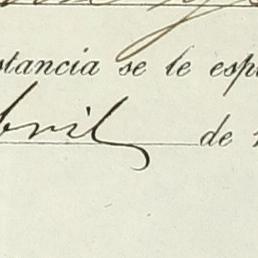 stancia se le esp
bril de 1